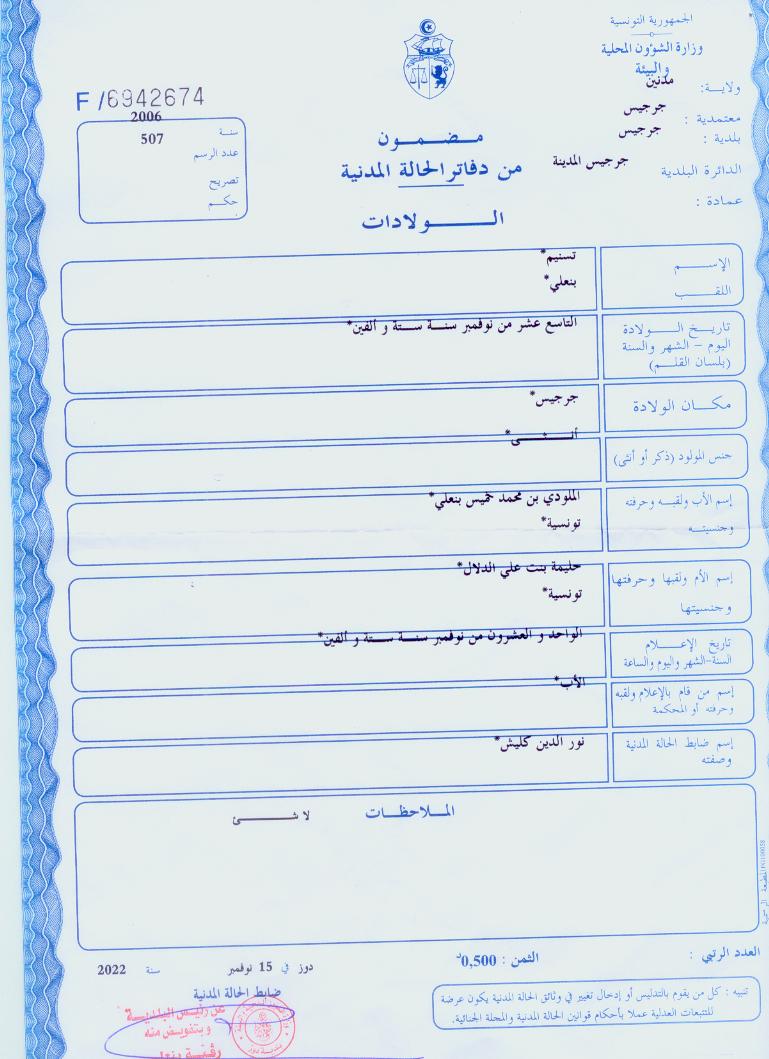 الجمهورية التونسية
وزارة الشؤون المحلية
والبيئة
ولاية: مدنين
معتمدية : جرجيس
بلدية : جرجيس
الدائرة البلدية جرجيس المدينة
عمادة :
F /6942674
سنة 2006
عدد الرسم 507
تصريح
حكم
مضمون
من دفاتر الحالة المدنية
الولادات
الإسم تسنيم*
اللقب بنعلي*
تاريخ الولادة التاسع عشر من نوفمبر سنة ستة و ألفين*
اليوم – الشهر والسنة
(بلسان القلم)
مكان الولادة جرجيس*
جنس المولود (ذكر أو أنثى) أنثى*
إسم الأب ولقبه وحرفته الملودي بن محمد خميس بنعلي*
وجنسيته تونسية*
إسم الأم ولقبها وحرفتها حليمة بنت علي الدلال*
وجنسيتها تونسية*
تاريخ الإعلام الواحد و العشرون من نوفمبر سنة ستة و ألفين*
السنة-الشهر واليوم والساعة
إسم من قام بالإعلام ولقبه الأب*
وحرفته أو المحكمة
إسم ضابط الحالة المدنية نور الدين كليش*
وصفته
الملاحظات لا شئ
العدد الرتبي :
الثمن : 0,500د
دوز في 15 نوفمبر سنة 2022
ضابط الحالة المدنية
عن رئيس البلدية
وبتفويض منه
تنبيه : كل من يقوم بالتدليس أو إدخال تغيير في وثائق الحالة المدنية يكون عرضة
للتتبعات العدلية عملا بأحكام قوانين الحالة المدنية والمجلة الجنائية.